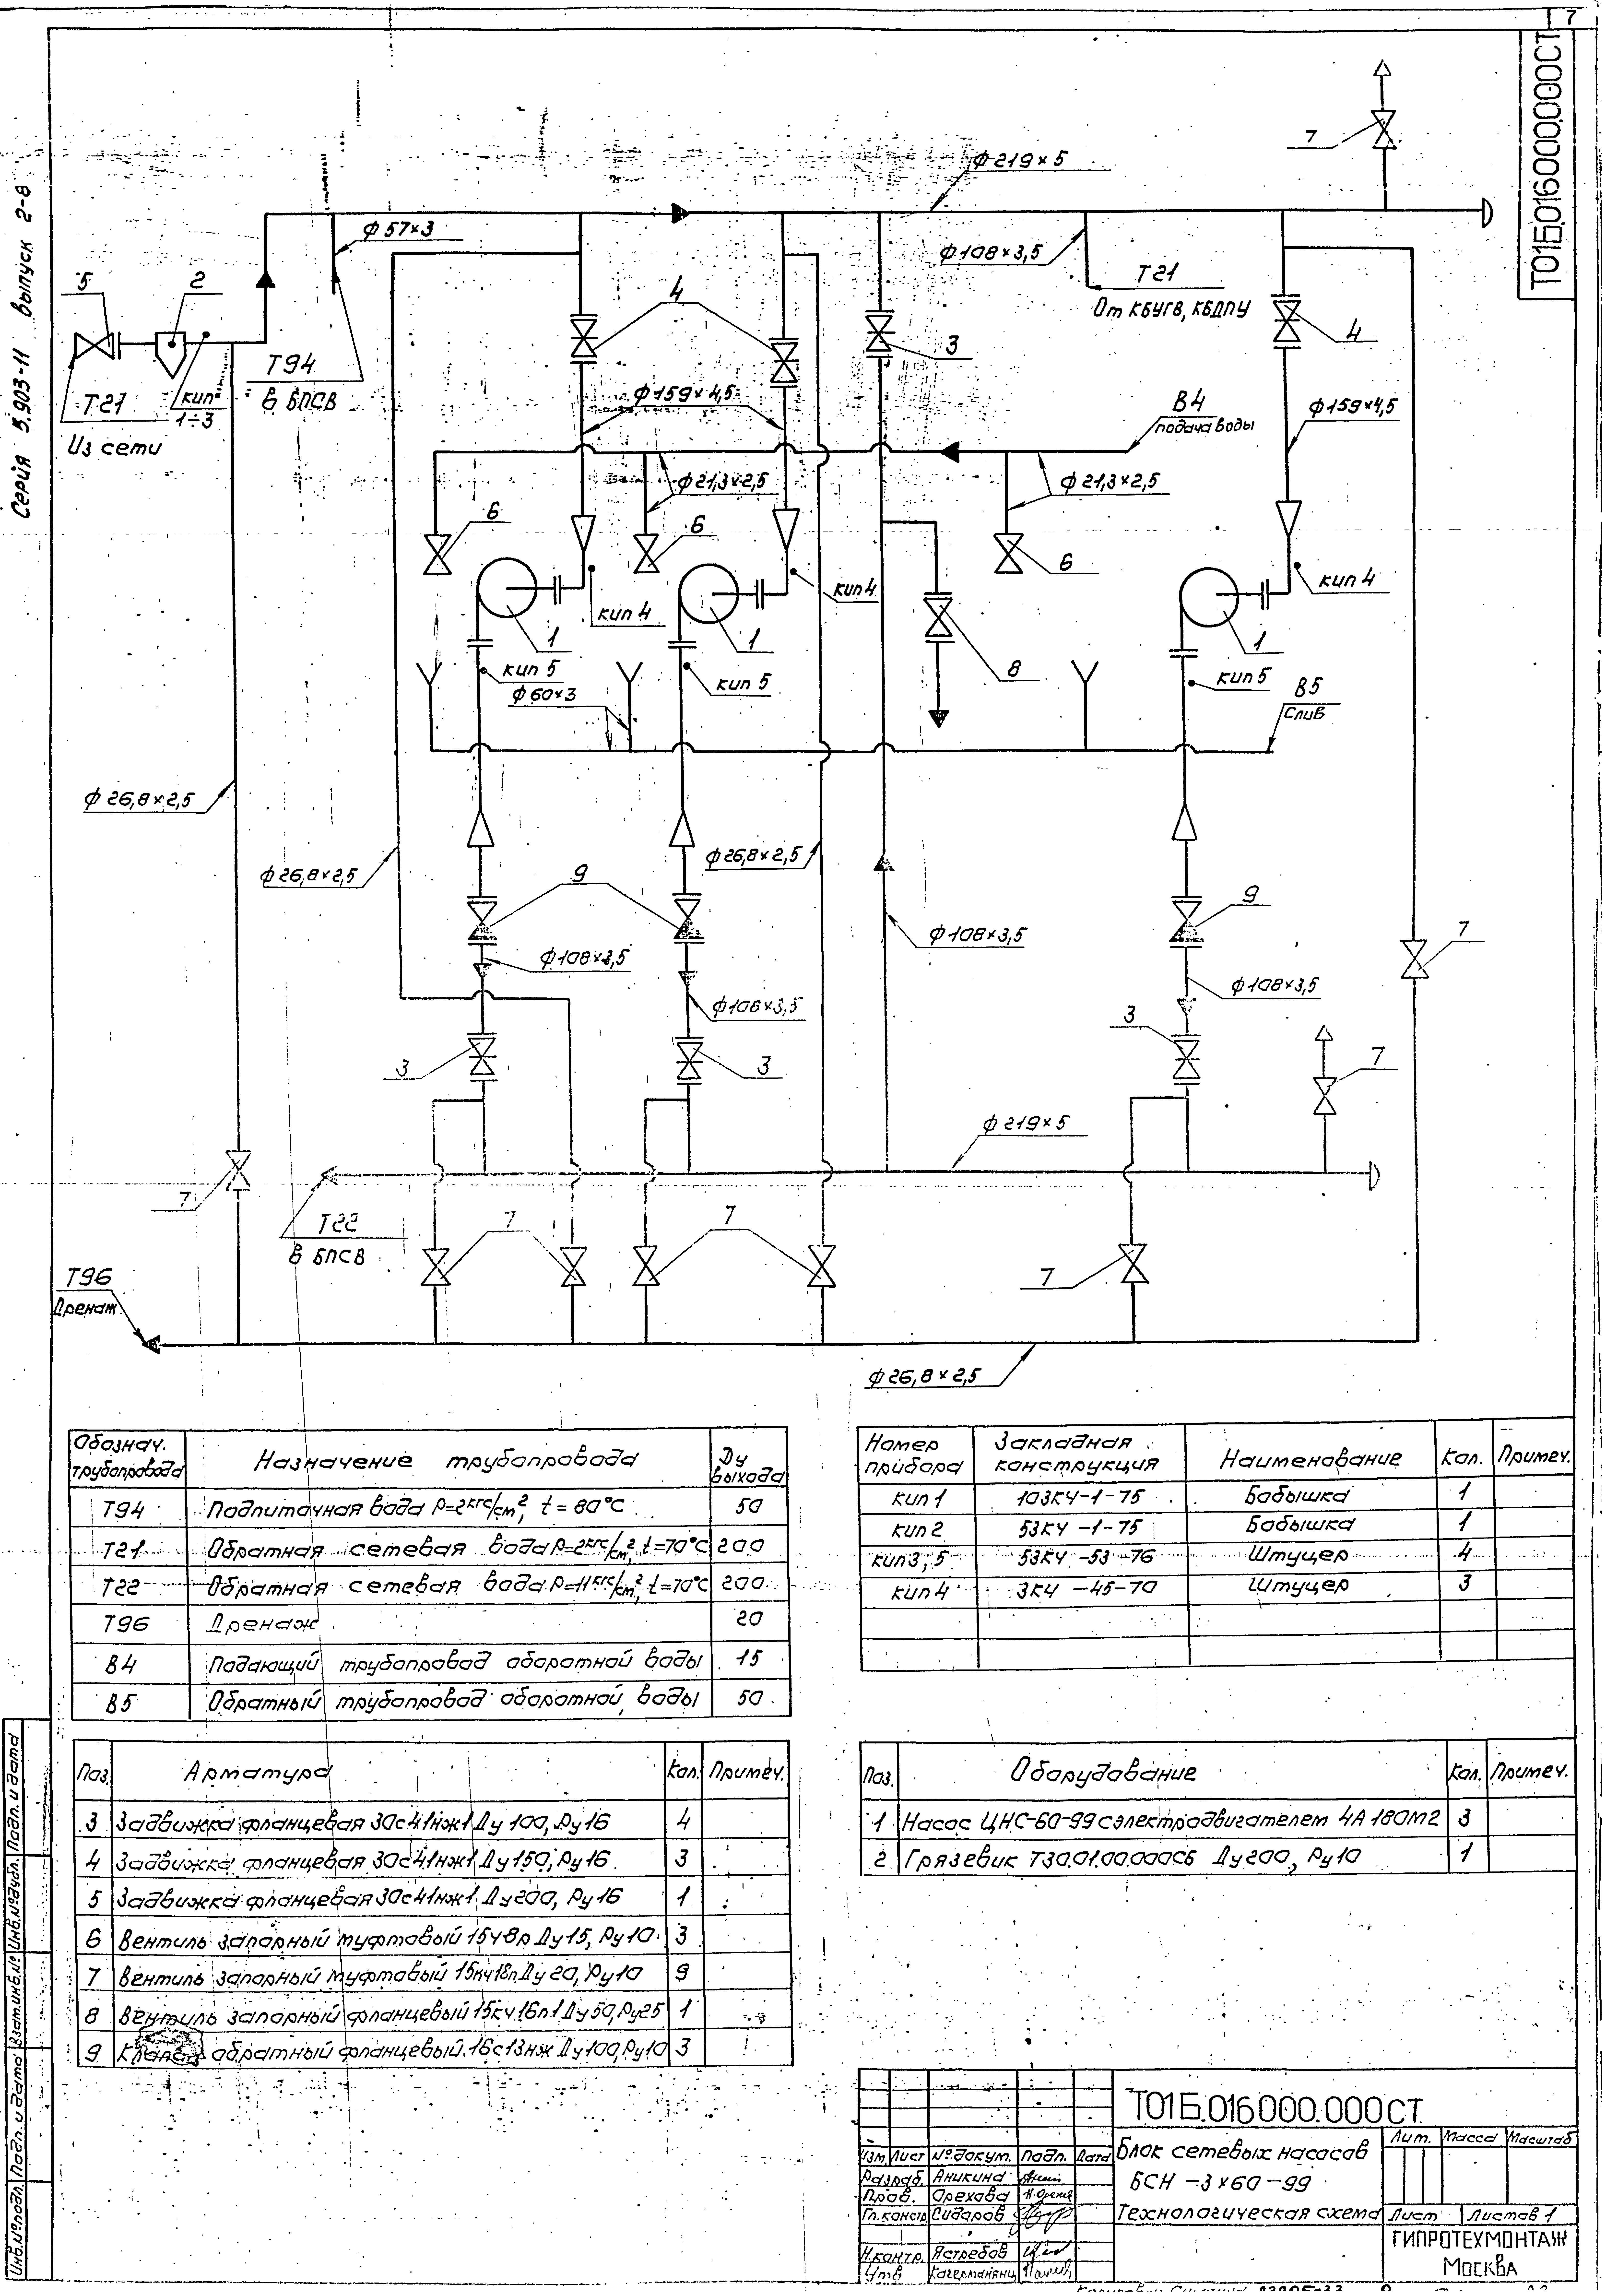 7
Т01Б.016000.000СТ
Серия 5.903-11 выпуск 2-8
7
ф219×5
ф57×3
ф108×3,5
Т21
От КБУГВ, КБДПУ
5
2
4
3
4
Т94
в БПСВ
Т21
Из сети
кип
1÷3
ф159×4,5
В4
подача воды
ф159×4,5
ф21,3×2,5
ф21,3×2,5
6
6
6
кип 4
кип 4
кип 4
1
1
1
8
кип 5
кип 5
кип 5
ф60×3
В5
Слив
ф26,8×2,5
ф26,8×2,5
ф26,8×2,5
9
9
ф108×3,5
7
ф108×3,5
ф108×3,5
ф108×3,5
3
3
3
7
ф219×5
7
Т22
в БПСВ
7
7
7
Т96
Дренаж
ф26,8×2,5
Обознач. трубопровода
Назначение трубопровода
Ду выхода
Т94 Подпиточная вода Р=2кгс/см², t=80°С 50
Т21 Обратная сетевая вода Р=2кгс/см², t=70°С 200
Т22 Обратная сетевая вода Р=11кгс/см², t=70°С 200
Т96 Дренаж 20
В4 Подающий трубопровод оборотной воды 15
В5 Обратный трубопровод оборотной воды 50
Номер прибора
Закладная конструкция
Наименование Кол. Примеч.
кип1 103КЧ-1-75 Бобышка 1
кип2 53КЧ-1-75 Бобышка 1
кип3, 5 53КЧ-53-76 Штуцер 4
кип4 3КЧ-45-70 Штуцер 3
Поз. Арматура Кол. Примеч.
3 Задвижка фланцевая 30с41нж1 Ду 100, Ру16 4
4 Задвижка фланцевая 30с41нж1 Ду150, Ру16 3
5 Задвижка фланцевая 30с41нж1 Ду200, Ру16 1
6 Вентиль запорный муфтовый 15ч8р Ду15, Ру10 3
7 Вентиль запорный муфтовый 15кч18п Ду 20, Ру10 9
8 Вентиль запорный фланцевый 15кч16п1 Ду50, Ру25 1
9 Клапан обратный фланцевый 16с13нж Ду100, Ру10 3
Поз. Оборудование Кол. Примеч.
1 Насос ЦНС-60-99 с электродвигателем 4А180М2 3
2 Грязевик Т30.01.00.000СБ Ду200, Ру10 1
Инв.№подл. Подп. и дата Взам.инв.№ Инв.№дубл. Подп. и дата
Т01Б.016000.000СТ
Изм. Лист №докум. Подп. Дата
Разраб. Аникина
Пров. Орехова
Гл.констр. Сидоров
Н.контр. Ястребов
Утв.
Блок сетевых насосов
БСН-3×60-99
Технологическая схема
Лит. Масса Масштаб
Лист Листов 1
ГИПРОТЕХМОНТАЖ
Москва